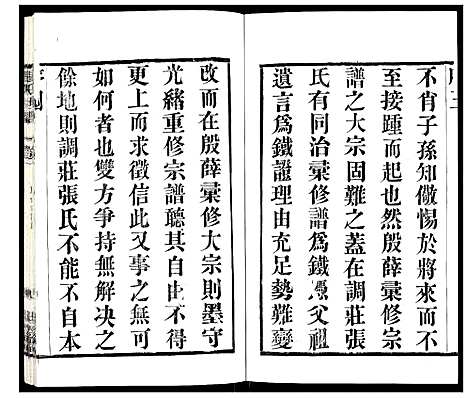 不肖子孫知儆惕於將來而不
至接踵而起也然殷薛彙修宗
譜之大宗固難之蓋在調莊張
氏有同治彙修譜爲鐵憑父祖
遺言爲鐵證理由充足勢難變
改而在殷薛彙修大宗則墨守
光緒重修宗譜聽其自由不得
更上而求徵信此又事之無可
如何者也雙方爭持無解決之
餘地則調莊張氏不能不自本